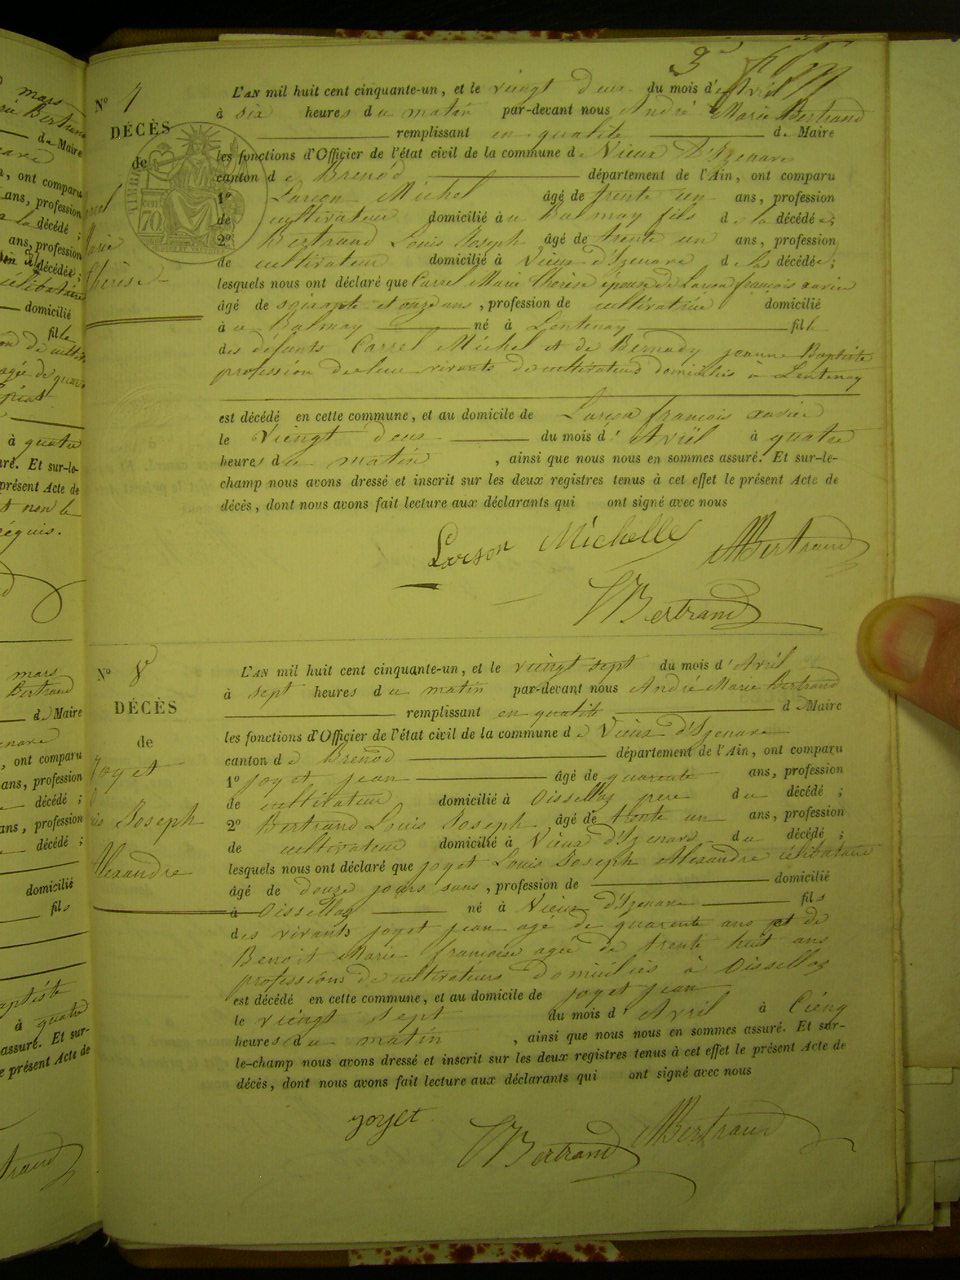 3e
N° 7
DÉCÈS
de
Carrel
Marie
Thérèse
L'AN mil huit cent cinquante-un, et le viengt deux du mois d'Avril
à six heures du matin par-devant nous André Marie Bertrand
remplissant en qualité de Maire
les fonctions d'Officier de l'état civil de la commune de Vieux d'Izenave
canton de Brenod département de l'Ain, ont comparu
1° Larson Michel âgé de trente un ans, profession
de cultivateur domicilié à u Balmay fils de la décédée;
2° Bertrand Louis Joseph âgé de trente un ans, profession
de cultivateur domicilié à Vieux d'Izenave de la décédée;
lesquels nous ont déclaré que Carrel Marie Thérèse épouse de Larson françois xavier
âgé de soixante et onze ans, profession de cultivatrice domicilié
à u Balmay né à Lentenay fill
des défunts Carrel Michel et de Bernady jeanne Baptiste
profession de leur vivants de cultivateurs domiciliés à Lentenay
est décédé en cette commune, et au domicile de Larson françois xavier
le viengt deux du mois d'Avril à quatre
heures du matin, ainsi que nous nous en sommes assuré. Et sur-le-
champ nous avons dressé et inscrit sur les deux registres tenus à cet effet le présent Acte de
décès, dont nous avons fait lecture aux déclarants qui ont signé avec nous
Larson Michelle Bertrand
Bertrand
N° 8
DÉCÈS
de
Joyet
Joseph
Alexandre
L'AN mil huit cent cinquante-un, et le vieingt sept du mois d'Avril
à sept heures du matin par-devant nous André Marie Bertrand
remplissant en qualité de Maire
les fonctions d'Officier de l'état civil de la commune de Vieux d'Izenave
canton de Brenod département de l'Ain, ont comparu
1° joyet jean âgé de quarente ans, profession
de cultivateur domicilié à Oissellaz pere du décédé;
2° Bertrand Louis Joseph âgé de trente un ans, profession
de cultivateur domicilié à Vieux d'Izenave du décédé;
lesquels nous ont déclaré que joyet Louis Joseph Alexandre célibataire
âgé de douze jours, profession de domicilié
à Oissellaz né à Vieux d'Izenave fils
des vivants joyet jean age de quarente ans et de
Benoit Marie françoise agée de trente huit ans
professions de cultivateurs domiciliés à Oissellaz
est décédé en cette commune, et au domicile de joyet jean
le vieingt sept du mois d'Avril à Cienq
heures du matin, ainsi que nous nous en sommes assuré. Et sur-
le-champ nous avons dressé et inscrit sur les deux registres tenus à cet effet le présent Acte de
décès, dont nous avons fait lecture aux déclarants qui ont signé avec nous
joyet Bertrand Bertrand